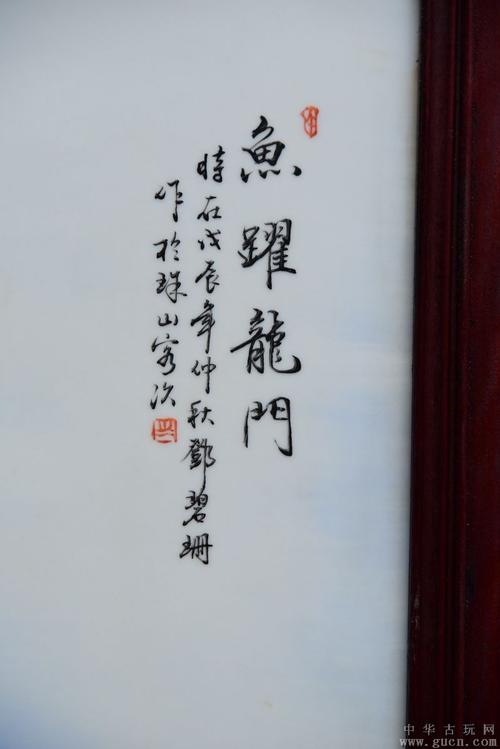 魚躍龍門
時在戊辰年仲秋鄧碧珊
作於珠山客次
中华古玩网
www.gucn.com